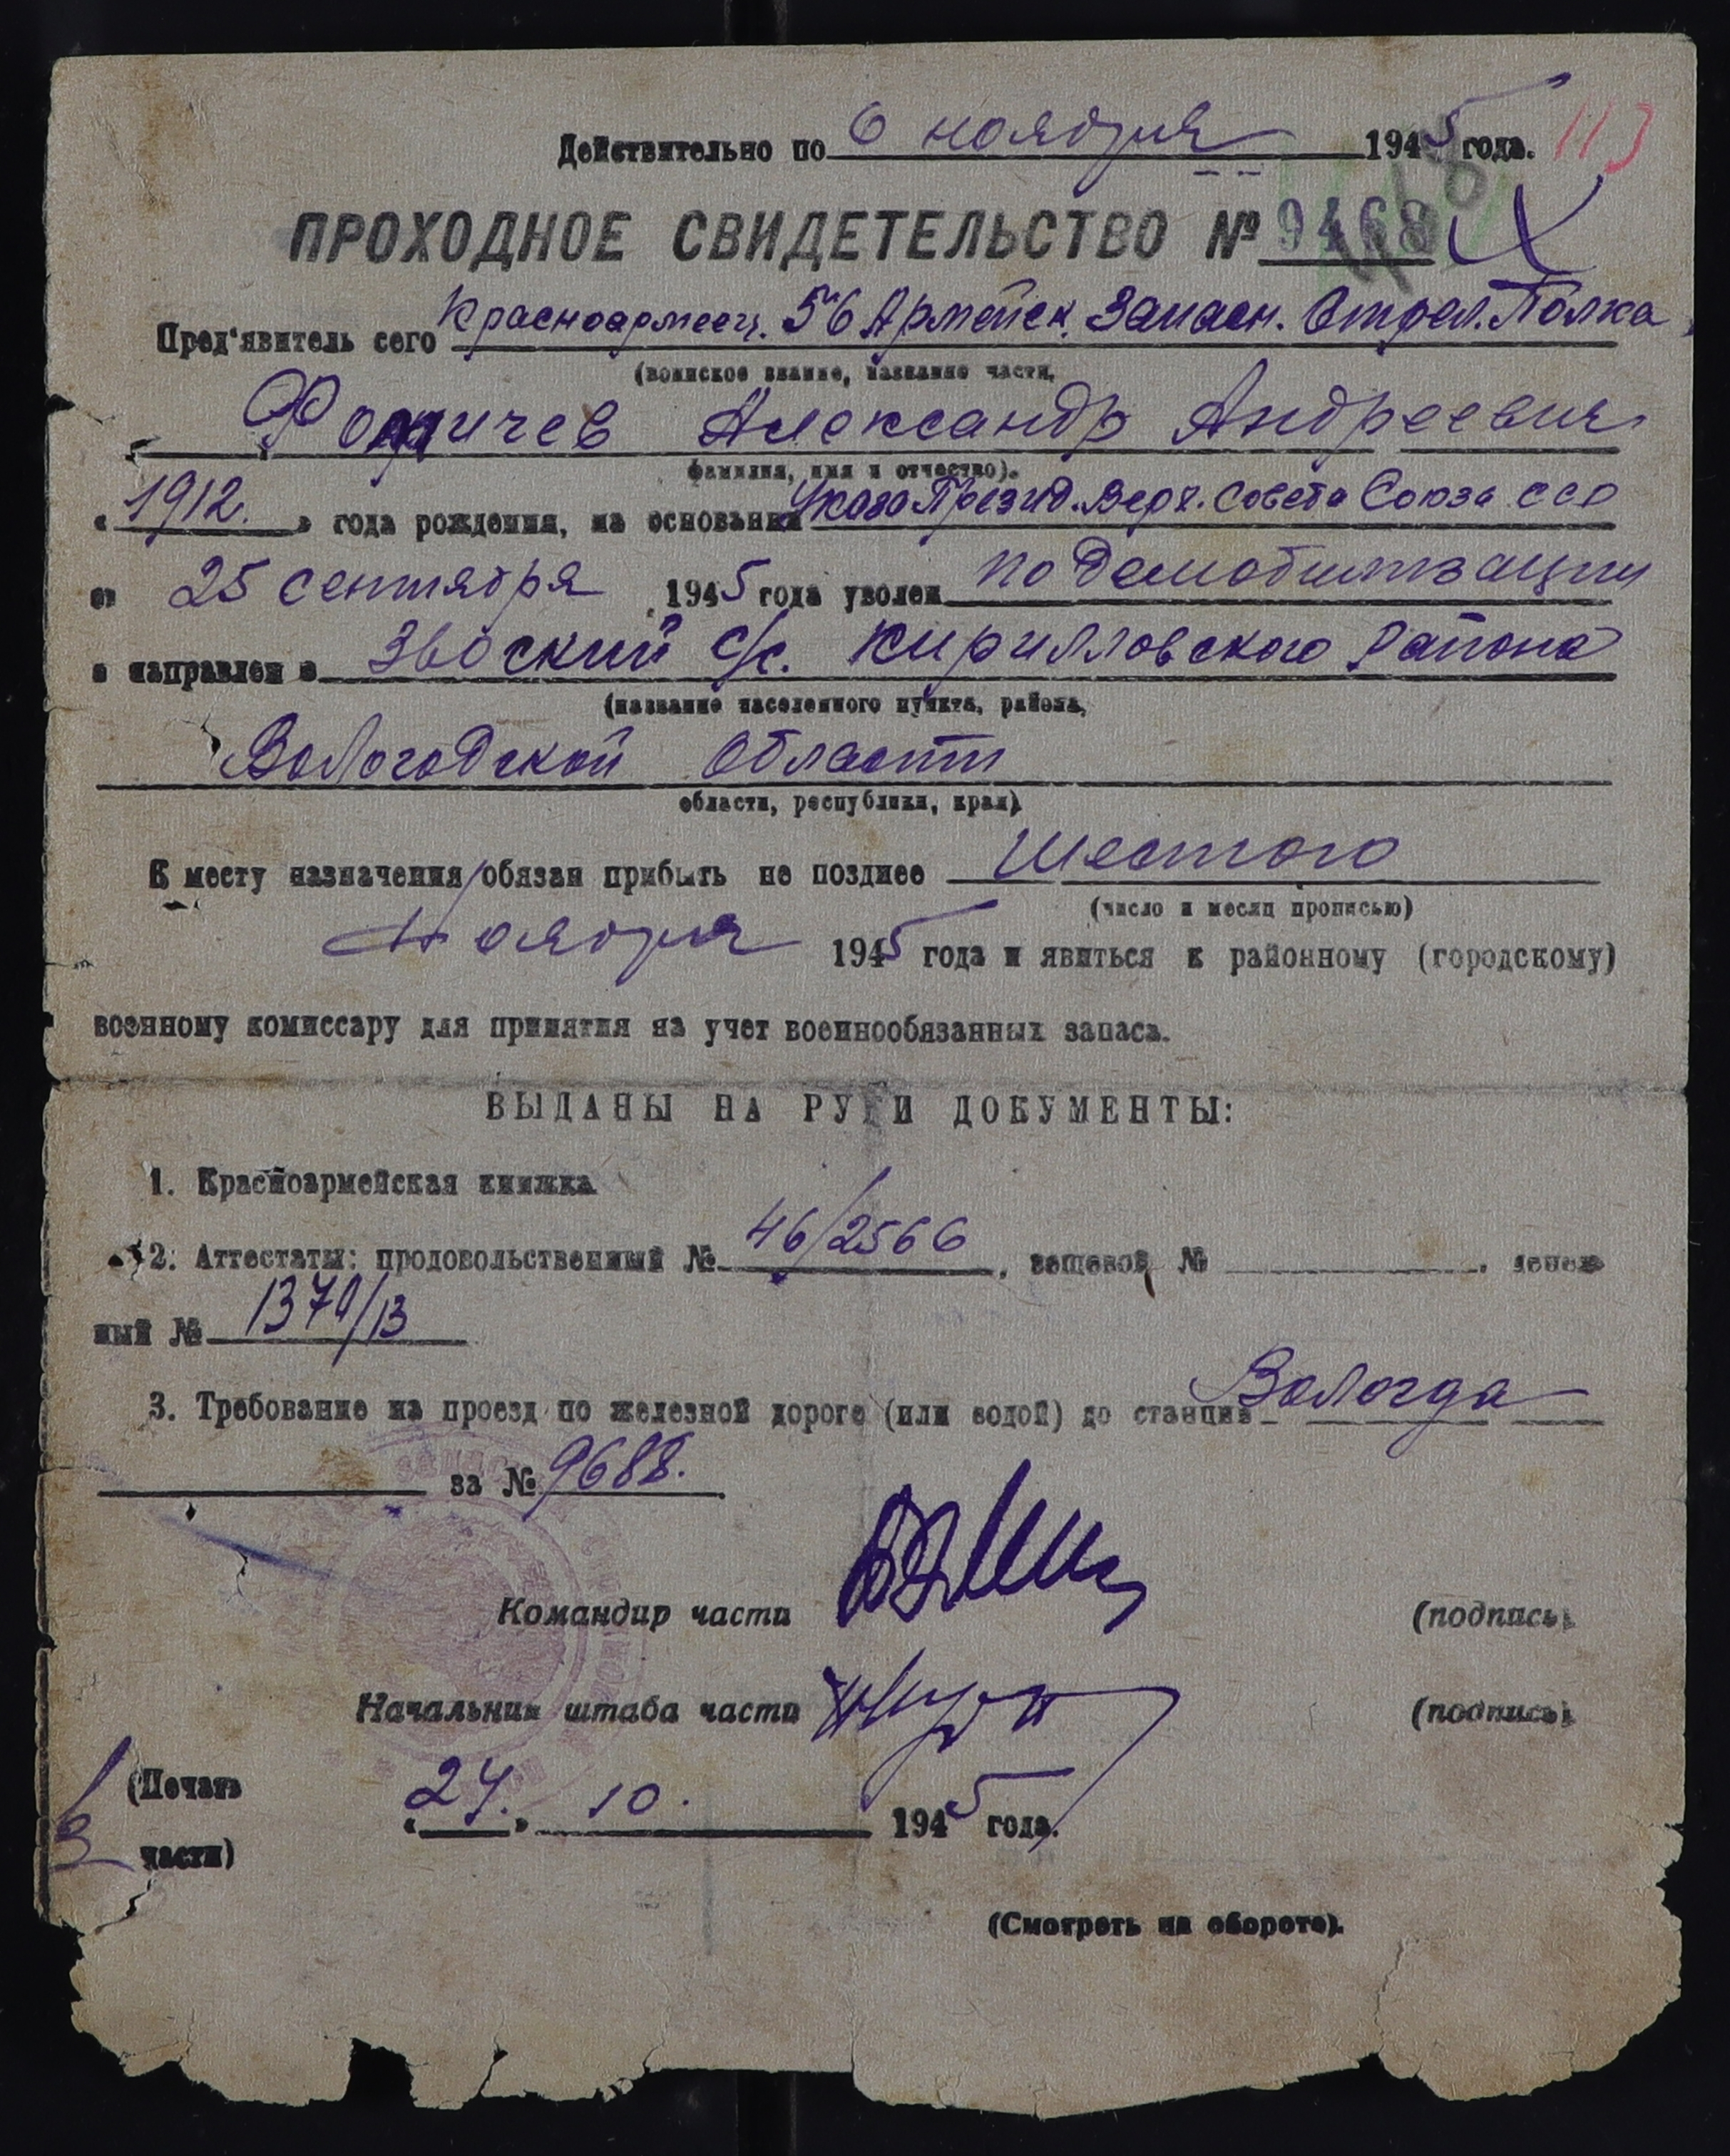 Действительно по 6 ноября 1945 года. 113
ПРОХОДНОЕ СВИДЕТЕЛЬСТВО № 9468
Пред'явитель сего Красноармеец. 56 Армейск. Запасн. Стрел. Полка
(воинское звание, название части,
Фомичев Александр Андреевич
фамилия, имя и отчество).
«1912.» года рождения, на основании Указа Презид. Верх. Совета Союза ССР
от 25 сентября 1945 года уволен по демобилизации
и направлен в с/с. Кирилловского района
(название населенного пункта, района,
Вологодской области
области, республики, края)
К месту назначения обязан прибыть не позднее Шестого
(число и месяц прописью)
Ноября 1945 года и явиться к районному (городскому)
военному комиссару для принятия на учет военнообязанных запаса.
ВЫДАНЫ НА РУКИ ДОКУМЕНТЫ:
1. Красноармейская книжка
2. Аттестаты: продовольственный № 46/2566, вещевой № , денеж
ный № 1370/13
3. Требование на проезд по железной дороге (или водой) до станции Вологда
за № 9688.
Командир части (подпись)
Начальник штаба части (подпись)
(Печать «24.» 10. 1945 года.
части)
(Смотреть на обороте).